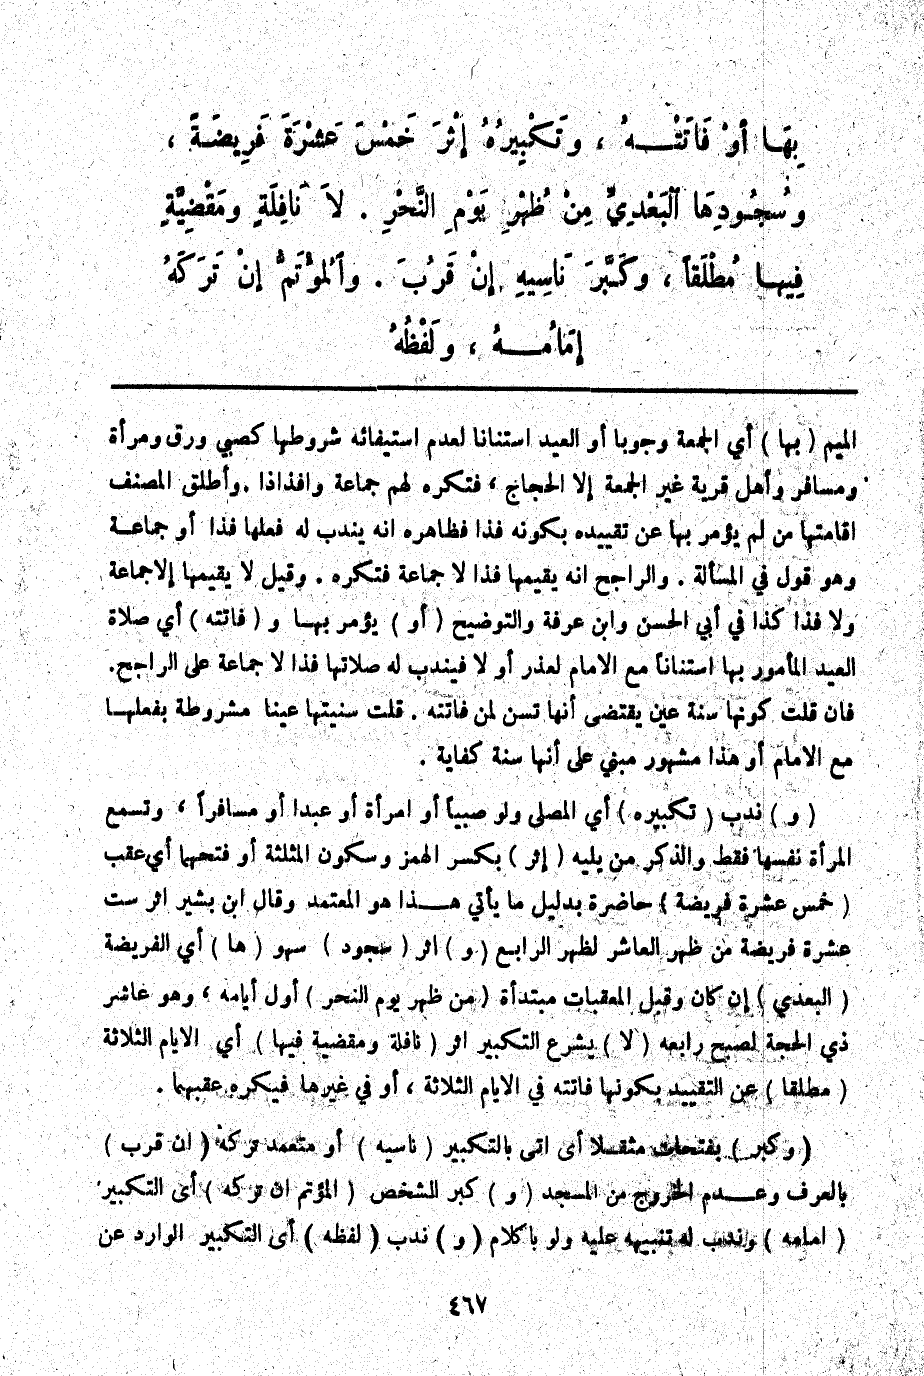 بِهَا أوْ فَاتَتْهُ ، وَتَكْبِيرُهُ إثْرَ خَمْسَ عَشْرَةَ فَرِيضَةً ،
وسُجُودِهَا ٱلْبَعْدِيِّ مِنْ ظُهْرِ يَوْمِ النَّحْرِ . لاَ نَافِلَةٍ ومَقْضِيَّةٍ
فِيهَا مُطْلَقاً ، وكَبَّرَ نَاسِيهِ إنْ قَرُبَ . وٱلمُؤْتَمُّ إنْ تَرَكَهُ
إمَامُهُ ، ولَفْظُهُ
الميم ( بها ) أي الجمعة وجوبا أو العيد استنانا لعدم استيفائه شروطها كصبي ورق ومرأة
ومسافر وأهل قرية غير الجمعة إلا الحجاج ، فتكره لهم جماعة وافذاذا . وأطلق المصنف
اقامتها من لم يؤمر بها عن تقييده بكونه فذا فظاهره انه يندب له فعلها فذا أو جماعة
وهو قول في المسألة . والراجح انه يقيمها فذا لا جماعة فتكره . وقيل لا يقيمها إلاجماعة
ولا فذا كذا في أبي الحسن وابن عرفة والتوضيح ( أو ) يؤمر بها و ( فاتته ) أي صلاة
العيد المأمور بها استناناً مع الامام لعذر أو لا فيندب له صلاتها فذا لا جماعة على الراجح.
فان قلت كونها سنة عين يقتضى أنها تسن لمن فاتته . قلت سنيتها عينا مشروطة بفعلها
مع الامام أو هذا مشهور مبني على أنها سنة كفاية .
( و ) ندب ( تكبيره ) أي المصلى ولو صبياً أو امرأة أو عبدا أو مسافراً ، وتسمع
المرأة نفسها فقط والذكر من يليه ( إثر ) بكسر الهمز وسكون المثلثة أو فتحهما أي عقب
( خمس عشرة فريضة ) حاضرة بدليل ما يأتي هذا هو المعتمد وقال ابن بشير اثر ست
عشرة فريضة من ظهر العاشر لظهر الرابع ( و ) اثر ( سجود ) سهو ( ها ) أي الفريضة
( البعدي ) إن كان وقبل المعقبات مبتدأة ( من ظهر يوم النحر ) أول أيامه ، وهو عاشر
ذي الحجة لصبح رابعه ( لا ) يشرع التكبير اثر ( نافلة ومقضية فيها ) أي الايام الثلاثة
( مطلقا ) عن التقييد بكونها فاتته في الايام الثلاثة ، أو في غيرها فيكره عقبهما .
( وكبر ) بفتحات مثقلا أى اتى بالتكبير ( ناسيه ) أو متعمد تركه ( ان قرب )
بالعرف وعدم الخروج من المسجد ( و ) كبر الشخص ( المؤتم ان تركه ) أى التكبير
( امامه ) وندب له تنبيهه عليه ولو باكلام ( و ) ندب ( لفظه ) أى التكبير الوارد عن
٤٦٧